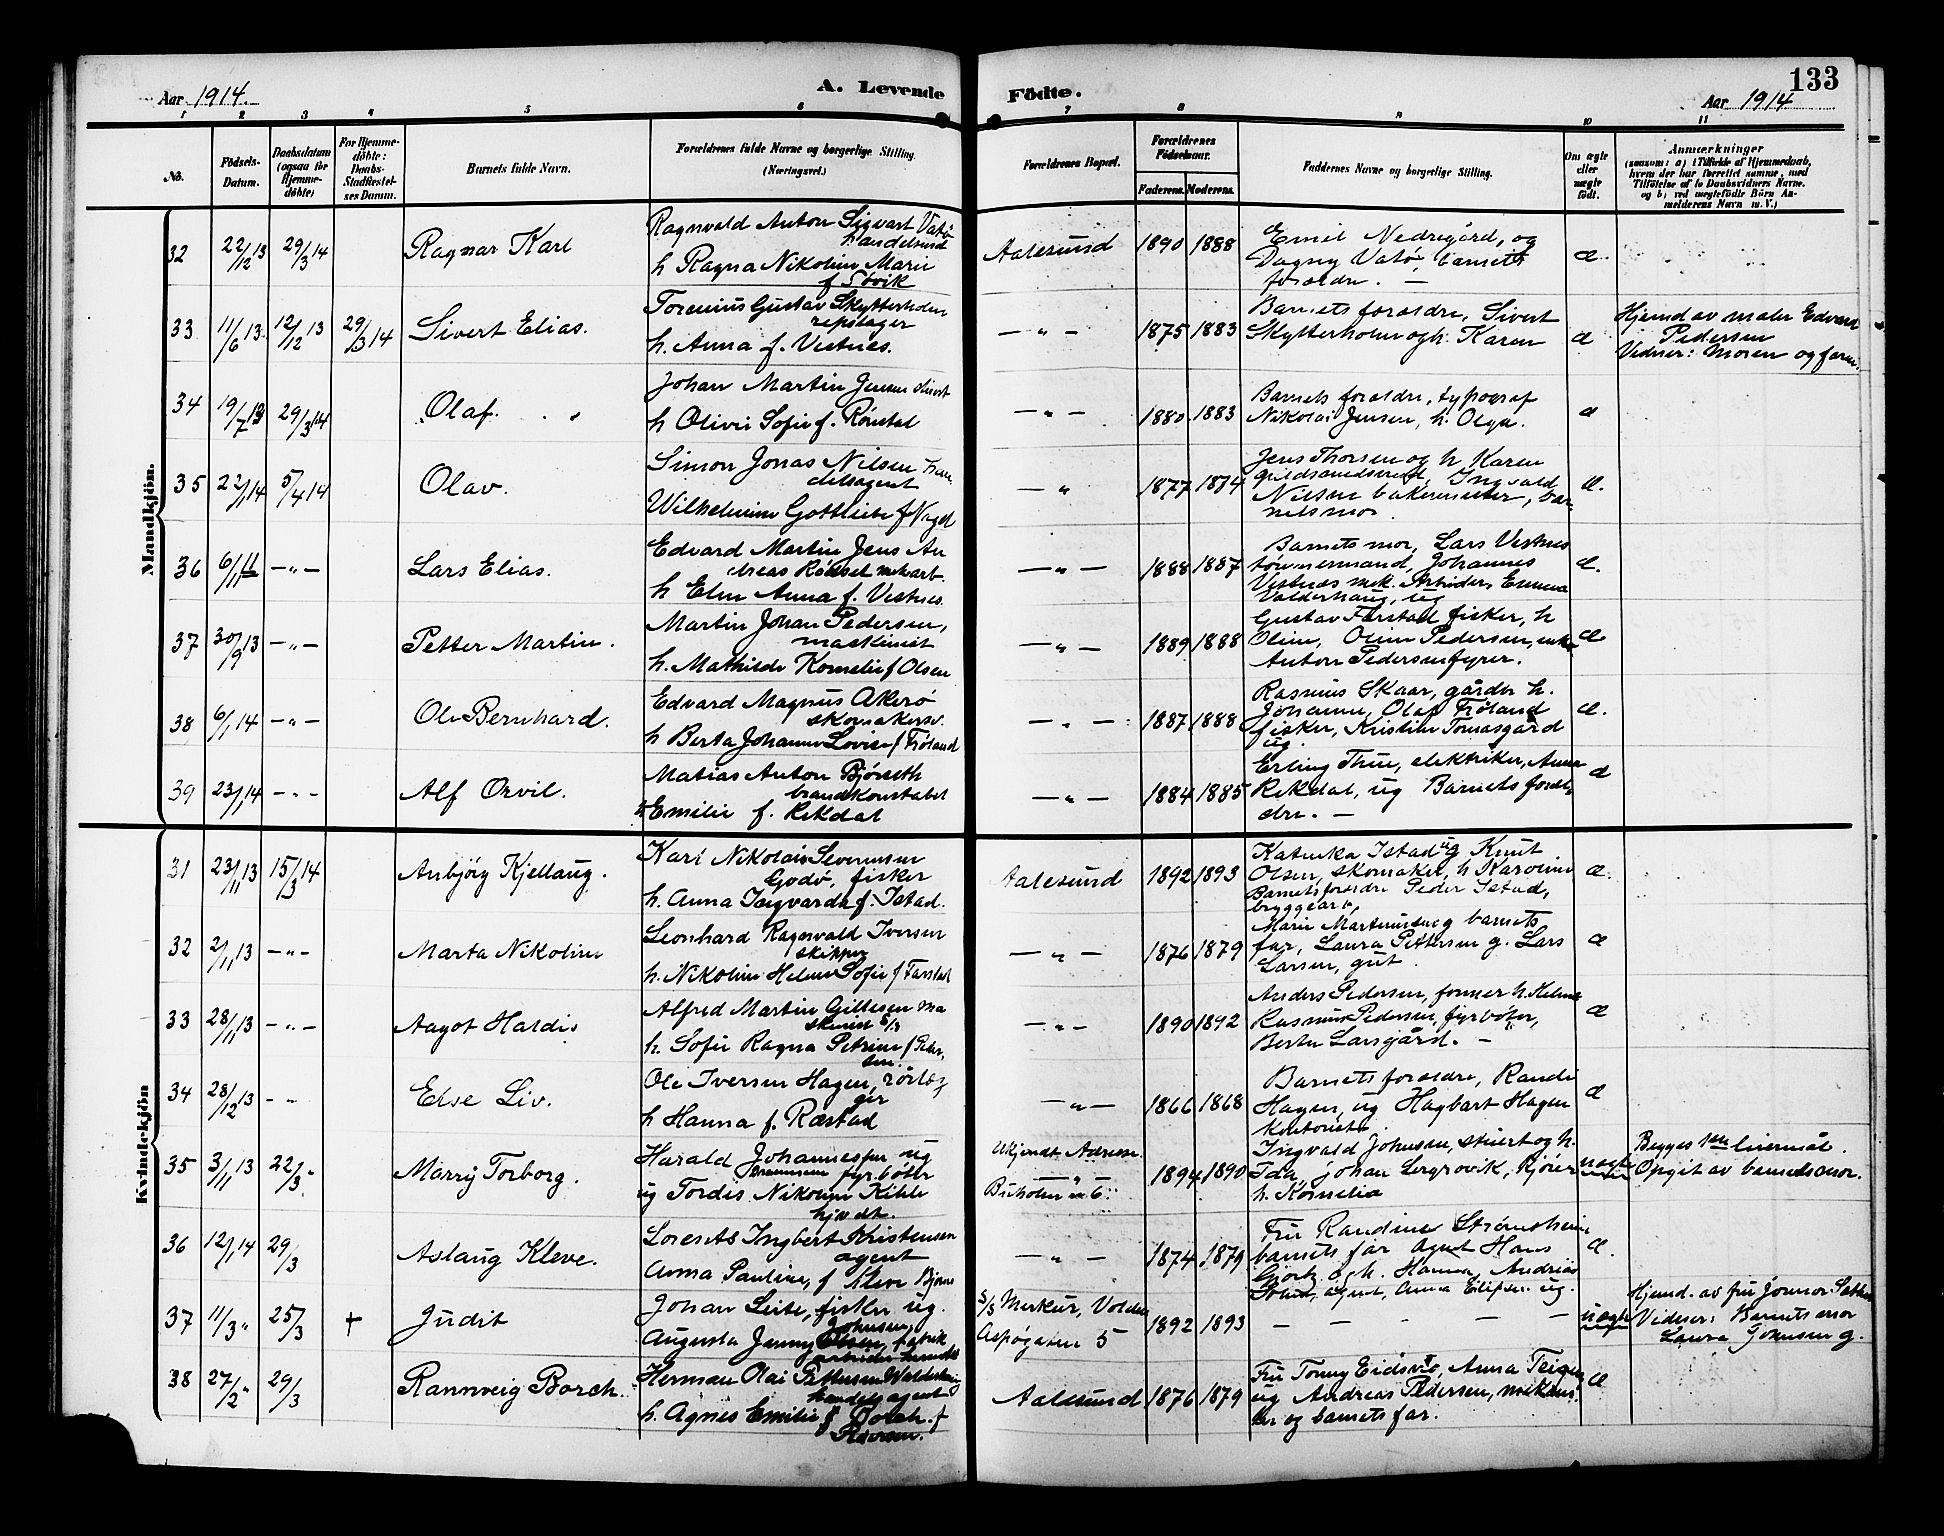 133
Aar 1914.
A. Levende
Födte.
Aar 1914
1 2 3 4 5 6 7 8 9 10 11
No.
Födsels-Datum.
Daabsdatum (ogsaa for Hjemmedöbte)
For Hjemmedöbte: Daabs-Stadfestelses Datum.
Barnets fulde Navn.
Forældrenes fulde Navne og borgerlige Stilling. (Næringsvei.)
Forældrenes Bopæl.
Forældrenes Födselsaar.
Faderens. Moderens.
Faddernes Navne og borgerlige Stilling.
Om ægte eller uægte födt.
Anmærkninger
(saasom: a) i Tilfælde af Hjemmedaab, hvem der har forrettet samme, med Tilföielse af to Daabsvidners Navne. og b) ved uægtefödte Börn Anmelderens Navn m.V.)
Mandkjön.
32 22/12 13 29/3 14 Ragnar Karl
Ragnvald Anton Sigvart Vatö
handelsmd
h Ragna Nikolin Marie
f. Søvik
Aalesund 1890 1888
Emil Nedregård, og
Dagny Vatö, barnets
forældre. —
æ.
33 11/6 13 12/12 13 29/3 14 Sivert Elias.
Gustav Skytterholm
repslager
h. Anna f. Vestnes.
— " — 1875 1883
Barnets forældre, Sivert
Skytterholm og h. Karen
æ
Hjemd av maler Edvard
Pedersen
Vidner: Moren og faren.
34 19/7 13 29/3 14 Olaf.
Johan Martin Jensen
h Olivie Sofie f. Rønstad
— " — 1880 1883
Barnets forældre, typograf
Nikolai Jensen, h. Olga.
æ
35 22/1 14 5/4 14 Olav.
Simon Jonas Nilsen han
delsagent
Wilhelmine Gottliebe f
— " 1877 1874
Jens Thorsen og h Karen
guldsmedsvend, Ingvald
Nilsen bakermester, bar
netsmor
æ.
36 6/11 — " — Lars Elias.
Edvard Martin Jens An
dreas Rönset mekarb.
h Elen Anna f. Vestnes.
— " — 1888 1887
Barnets mor, Lars Vestnes
tömmermand, Johannes
Vestnes mek. Arbeider, Emma
Valderhaug, ug
æ.
37 30/9 13 — " — Petter Martin.
Martin Johan Pedersen,
maskinist
h. Mathilde Kornelie f Olsen
— " — 1889 1888
Gustav Farstad fisker, h
Oline, Oline Pedersen, enke
Anton Pedersen fyrer.
æ
38 6/1 14 — " — Ole Bernhard.
Edvard Magnus Akerö
skomakersv.
h Berta Johanne Lovise f Fröland
— " — 1887 1888
Rasmus Skaar, gårdbr h.
Johanne, Olaf Fröland
fisker, Kristine Tomasgård
ug.
æ.
39 23/1 14 — " — Alf Orvil.
Matias Anton Bjørseth
brandkonstabel
h Emilie f. Rekdal
— " — 1884 1885
Erling Thue, elektriker, Anna
Rekdal, ug Barnets foræl
dre. —
æ
Kvindekjön
31 23/11 13 15/3 14 Anbjörg Kjellaug.
Karl Nikolais Severinsen
Godö, fisker
h. Anna Ingvarda f. Istad.
Aalesund 1892 1893
Katinka Istad ug Knut
Olsen, skomaker, h Karoline
Barnets forældre Peder Istad,
bryggearb,
æ.
32 2/11 13 — " — Marta Nikoline
Leonhard Ragnvald Iversen
skipper
h. Nikoline Helene Sofie f Farstad
— " — 1876 1879
Marie Martinusen g barnets
far, Laura Pettersen g. Lars
Larsen, gut
æ
33 28/11 13 — " — Aagot Haldis
Alfred Martin Gillesen ma
skinist
h. Sofie Ragna Petrine f Peder
sen.
— " — 1890 1892
Anders Pedersen, former h. Helene
Rasmus Pedersen, fyrböter,
Berte Larsgård. —
æ
34 28/12 13 — " — Else Liv.
Ole Iversen Hagen, rörlæg
ger
h Hanna f. Ræstad
— " — 1866 1868
Barnets forældre, Randi
Hagen, ug Hagbart Hagen
kontorist.
æ
35 3/11 13 22/3 " Marry Torborg.
Harald Johannesen ug
fyrböter
ug Tordis Nikoline Kible
hjv dt.
Ukjendt Adresse
— " —
Buholmen 6. 1894 1890
Ingvald Johnsen, stuert og h.
Ida, Johan Sergrovik, Kjörer
h. Kornelia
uægte
Begges 1ste leiermål.
Opgit av barnets mor.
36 12/1 14 29/3 Aslaug Kleve.
Lorents Ingbert Kristensen
agent
Anna Pauline, f Kleve
— " — 1874 1879
Fru Randine Strömsheim
barnets far Agent Hans
Gjörtz og h. Hanna, Andreas
agent, Anna Eilefsen ug.
æ.
37 11/3 " 25/3 † Judit
Johan Leite, fisker ug.
Augusta Jenny Johnsen, fabrik
arbeider
S/S Merkur, Volden
Aspögaten 5 1892 1893
— — — — —
uægte
Hjemd. av fru jormor Sether
Vidner: Barnets mor
Laura Johnsen g.
38 27/2 " 29/3 Rannveig Borch.
Herman Olai Pettersen Walderhaug
handelsagent
h. Agnes Emilie f Borch. f
Pedersen.
Aalesund 1876 1879
Fru Tonny Eidsvik, Anna Teigen
ug Andreas Pedersen, mekani
ker og barnets far.
æ